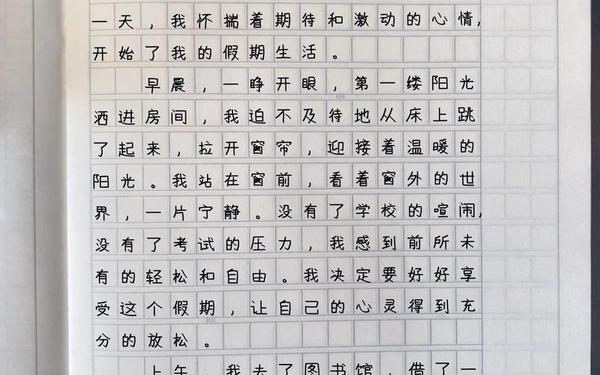 一天，我怀揣着期待和激动的心情，
开始了我的假期生活。
早晨，一睁开眼，第一缕阳光
洒进房间，我迫不及待地从床上跳
了起来，拉开窗帘，迎接着温暖的
阳光。我站在窗前，看着窗外的世
界，一片宁静。没有了学校的喧闹，
没有了考试的压力，我感到前所未
有的轻松和自由。我决定要好好享
受这个假期，让自己的心灵得到充
分的放松。
上午，我去了图书馆，借了一